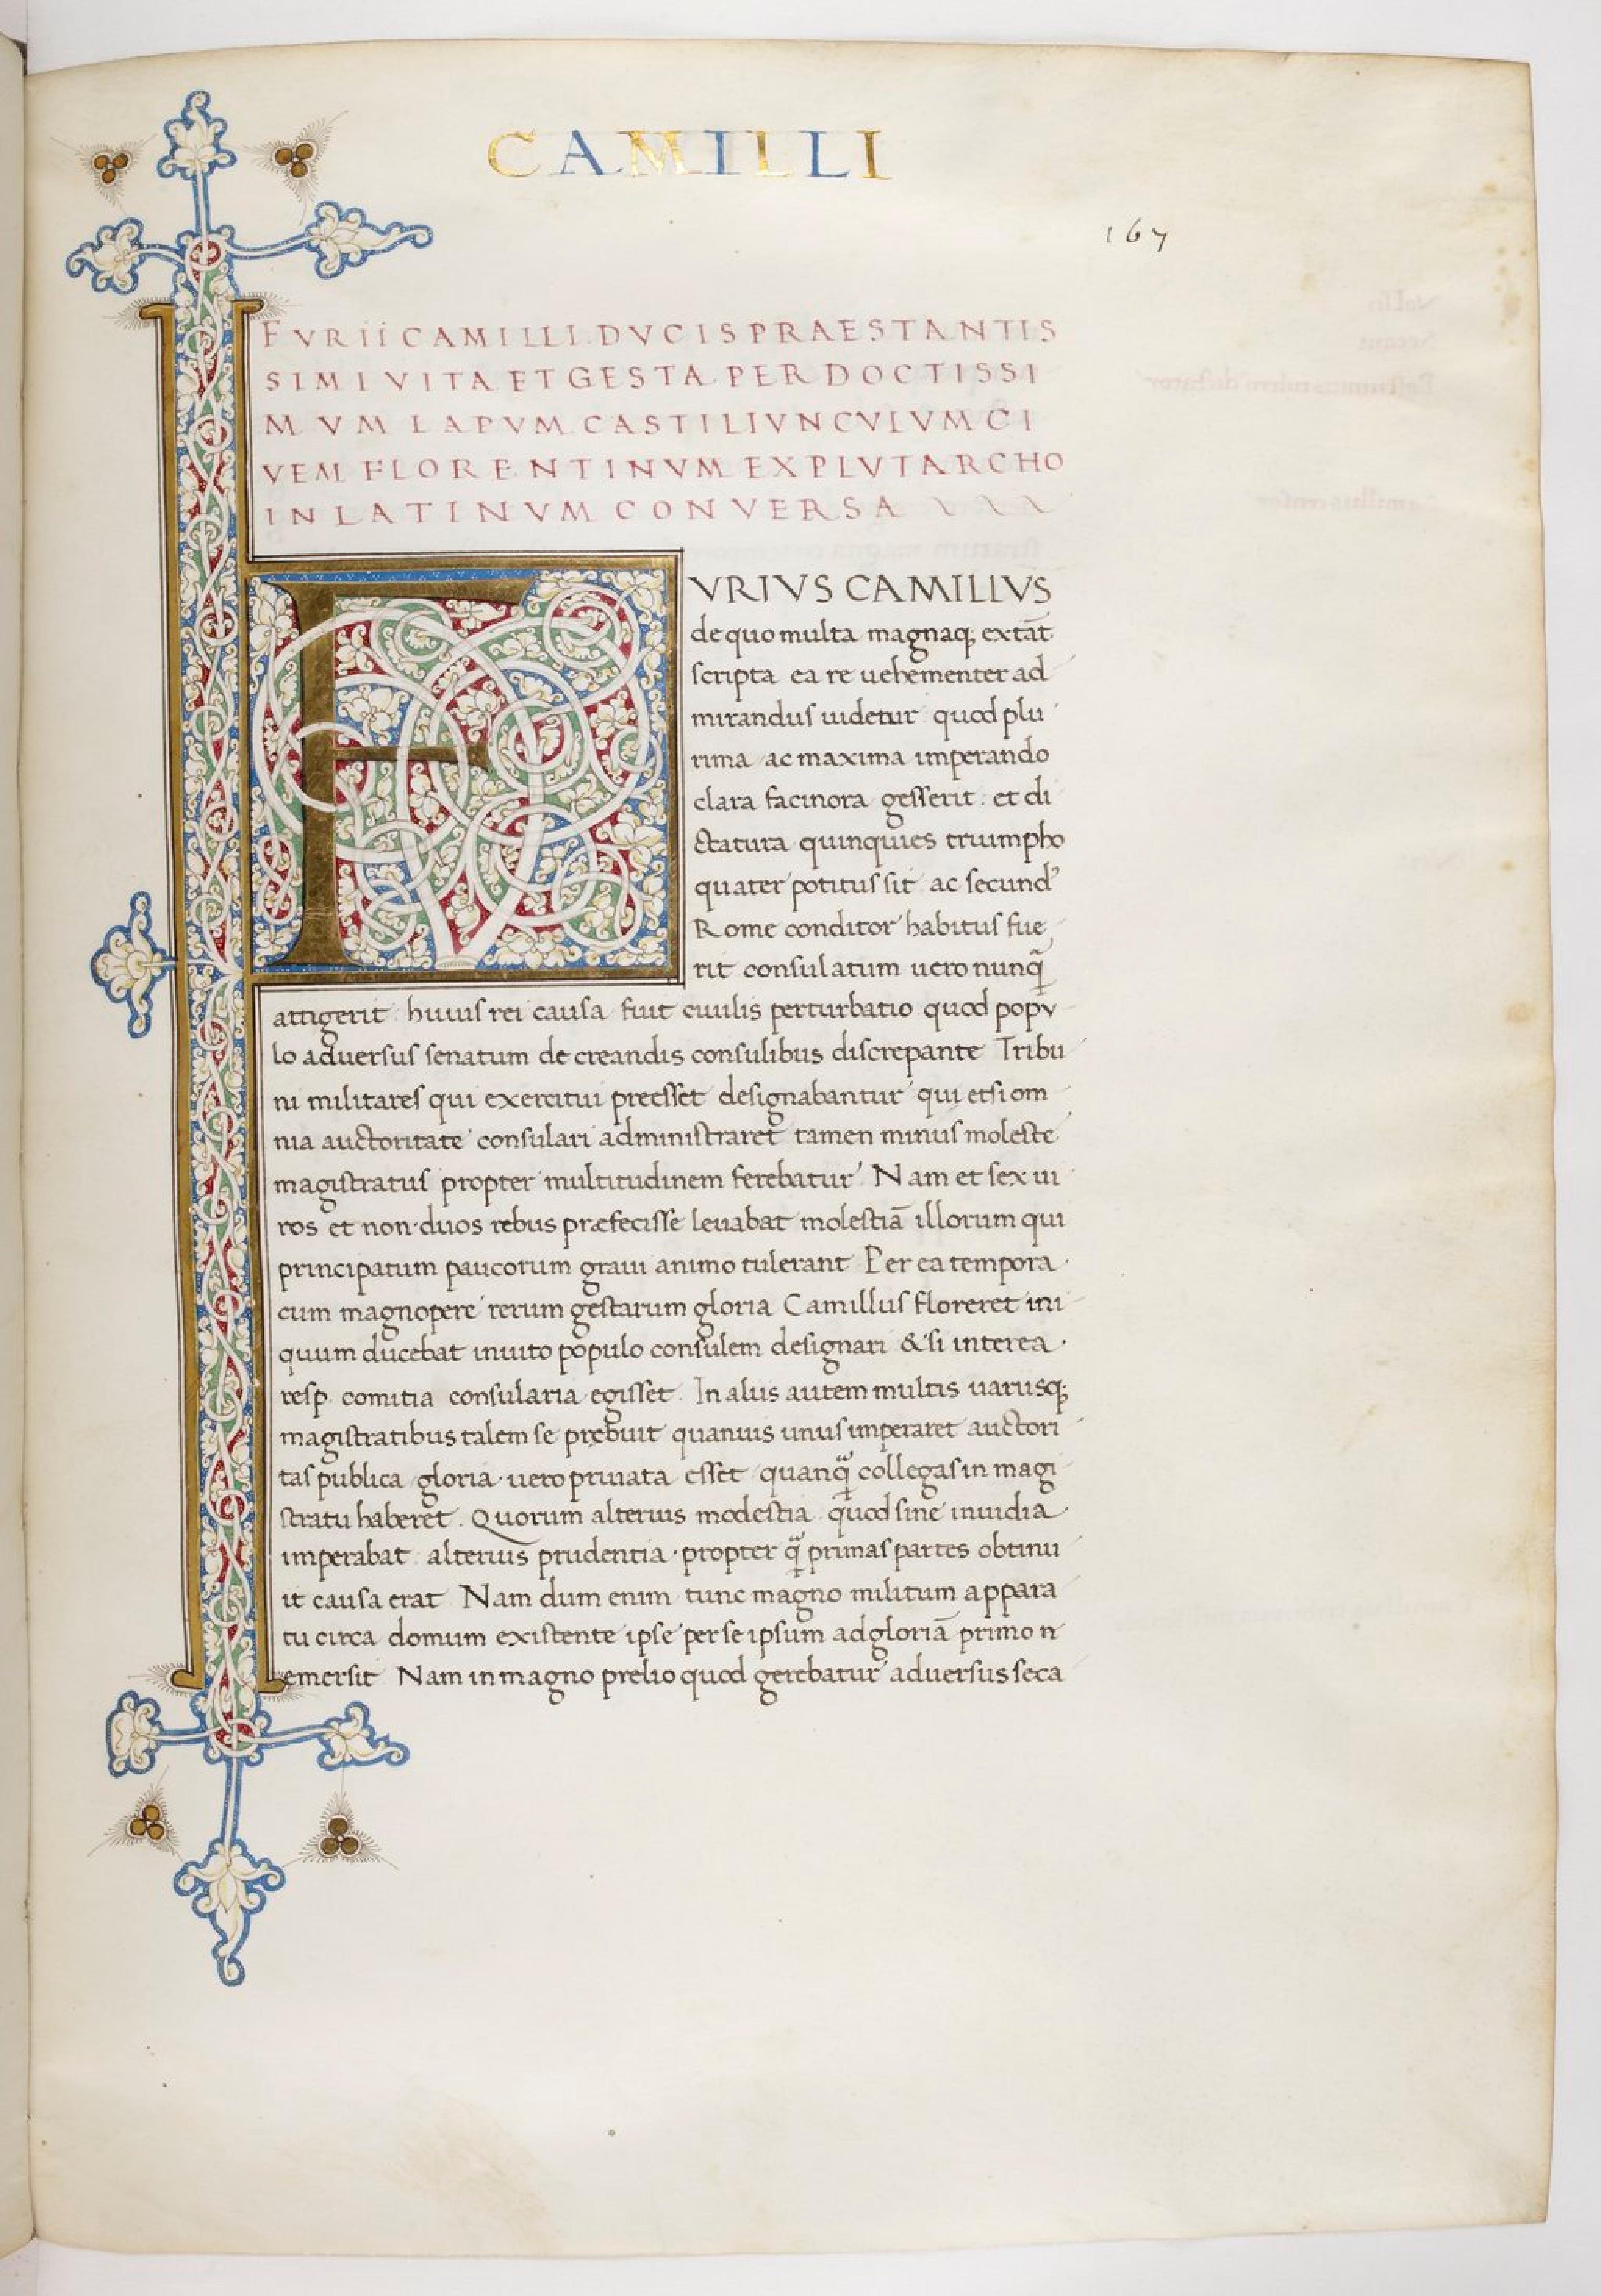 CAMILLI
167
FVRII CAMILLI DVCIS PRAESTANTIS
SIMI VITA ET GESTA PER DOCTISSI
MVM LAPVM CASTILIVNCVLVM CI
VEM FLORENTINVM EX PLVTARCHO
IN LATINVM CONVERSA
FVRIVS CAMILLVS
de quo multa magnaq; extāt
scripta ea re uehementer ad
mirandus uidetur quod plu
rima ac maxima imperando
clara facinora gesserit: et di
ctatura quinquies triumpho
quater potitus sit ac secund᾿
Rome conditor habitus fue
rit consulatum uero nunq̄
attigerit huius rei causa fuit ciuilis perturbatio quod popu
lo aduersus senatum de creandis consulibus discrepante Tribu
ni militares qui exercitui preesset designabantur qui etsi om
nia auctoritate consulari administraret tamen minus moleste
magistratus propter multitudinem ferebatur Nam et sex ui
ros et non duos rebus præfecisse leuabat molestiā illorum qui
principatum paucorum graui animo tulerant Per ea tempora
cum magnopere rerum gestarum gloria Camillus floreret ini
quum ducebat inuito populo consulem designari & si interea
resp. comitia consularia egisset. In aliis autem multis uariisq;
magistratibus talem se prębuit quamuis unus imperaret auctori
tas publica gloria uero priuata esset quanq̄ collegas in magi
stratu haberet. Quorum alterius modestia quod sine inuidia
imperabat alterius prudentia propter q̄ primas partes obtinu
it causa erat Nam dum enim tunc magno militum appara
tu circa domum existente ipse per se ipsum ad gloriā primo n
emersit Nam in magno prelio quod gerebatur aduersus seca